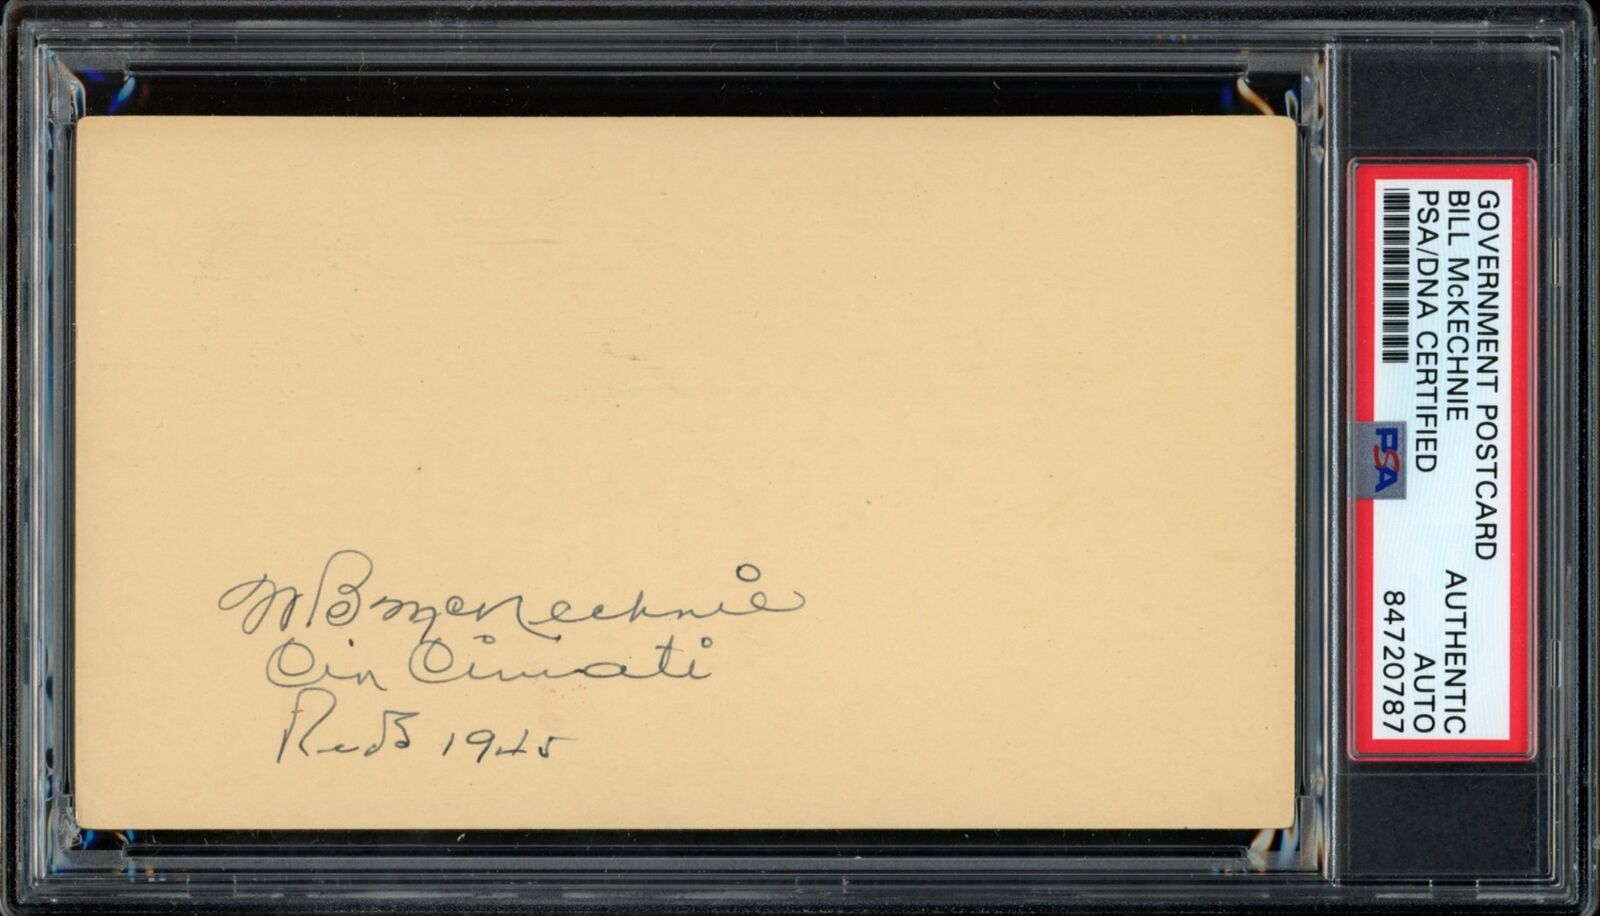 W B McKechnie
Cin Cinnati
Reds 1945
GOVERNMENT POSTCARD
BILL McKECHNIE
PSA/DNA CERTIFIED
AUTHENTIC
AUTO
84720787
PSA